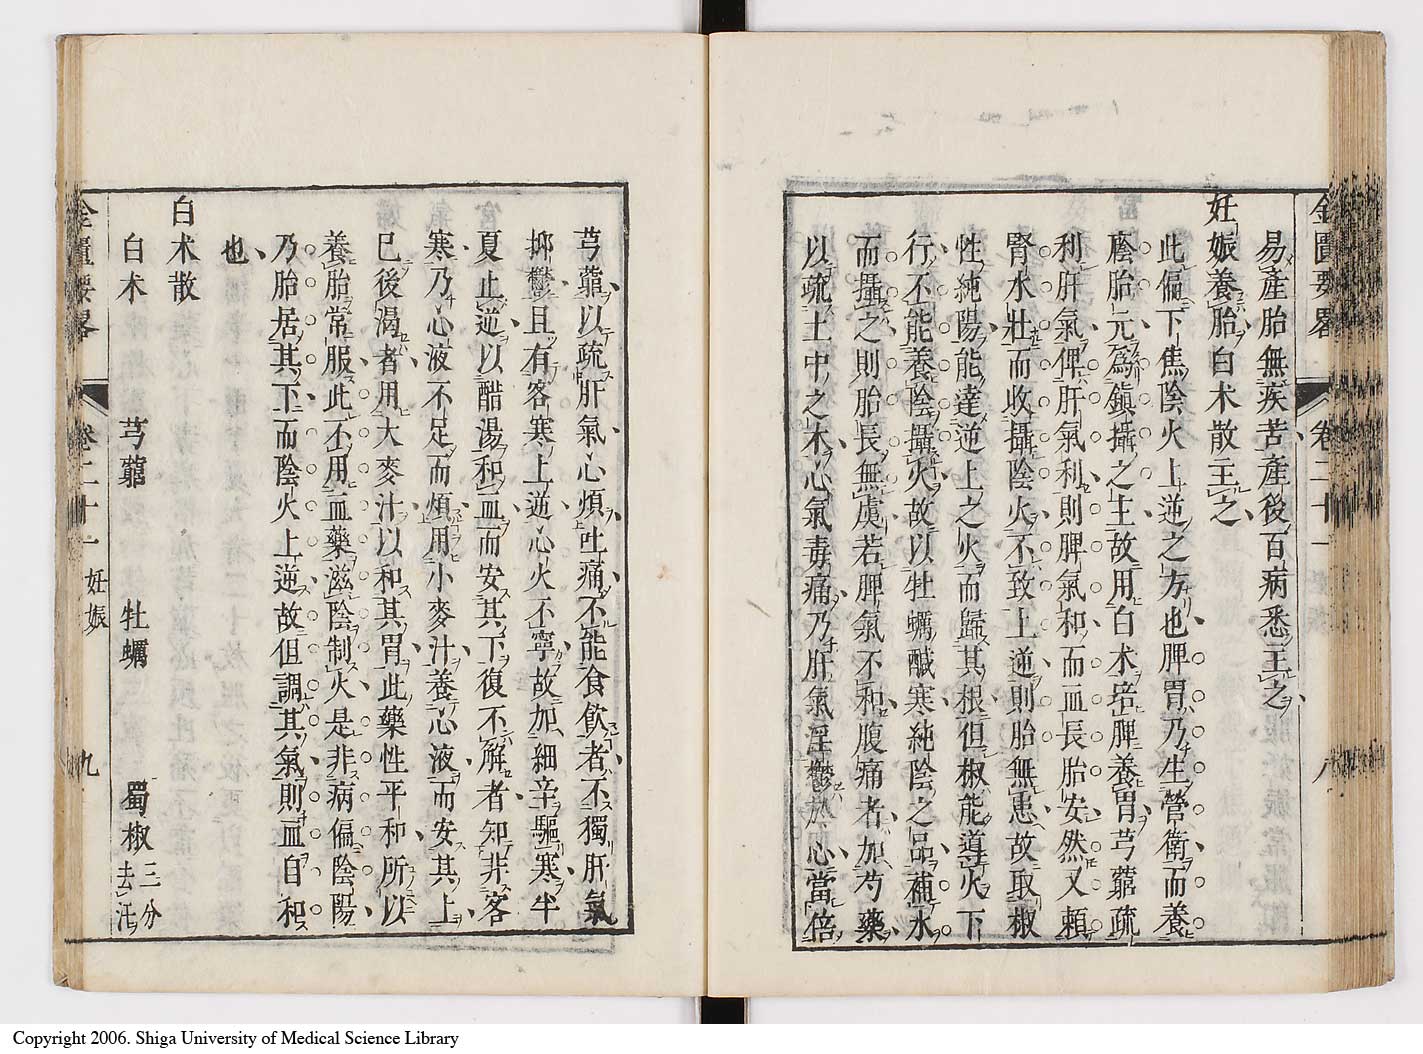 金匱要畧 卷二十一 妊娠 八
易產胎無疾苦產後百病悉主之
妊娠養胎白朮散主之
此偏下焦陰火上逆之方也脾胃乃生營衛而養
廕胎元爲鎭攝之主故用白朮培脾養胃芎藭疏
利肝氣俾肝氣利則脾氣和而血長胎安然又賴
腎水壯而收攝陰火不致上逆則胎無患故取椒
性純陽能達逆上之火而歸其根但椒能導火下
行不能養陰攝火故以牡蠣鹹寒純陰之品補水
而攝之則胎長無虞若脾氣不和腹痛者加芍藥
以疏土中之木心氣毒痛乃肝氣淫鬱於心當倍
芎藭以疏肝氣心煩吐痛不能食飲者不獨肝氣
抑鬱且有客寒上逆心火不寧故加細辛驅寒半
夏止逆以醋湯和血而安其下復不解者知非客
寒乃心液不足而煩用小麥汁養心液而安其上
已後渴者用大麥汁以和其胃此藥性平和所以
養胎常服此不用血藥滋陰制火是非病偏陰陽
乃胎居其下而陰火上逆故但調其氣則血自和
也
白朮散
白朮 芎藭 牡蠣 蜀椒三分去汗
金匱要畧 卷二十一 妊娠 九
Copyright 2006. Shiga University of Medical Science Library